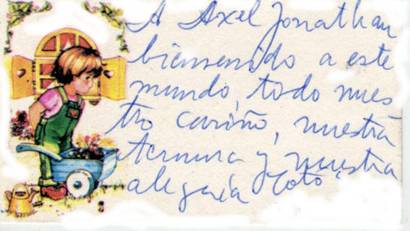 A Axel Jonathan
bienvenido a este
mundo, todo nues
tro cariño, nuestra
ternura y nuestra
alegría Toto